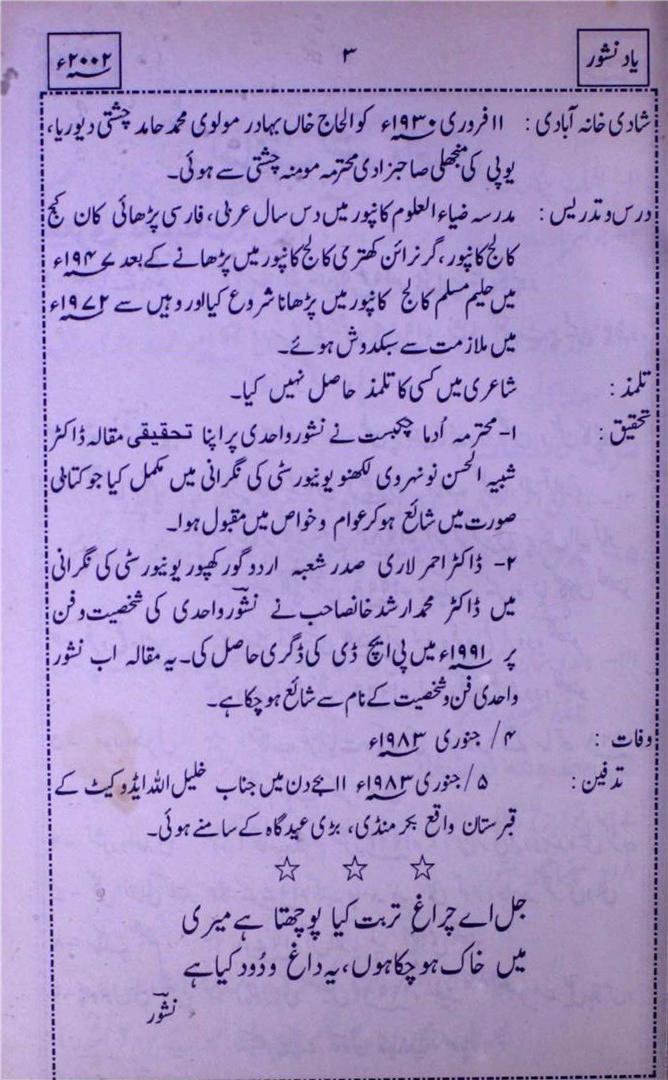 یاد نشور
۳
۲۰۰۲ء
شادی خانہ آبادی : ۱۱ فروری ۱۹۳۰ء کو الحاج خاں بہادر مولوی محمد حامد چشتی دیوریا،
یوپی کی منجھلی صاحبزادی محترمہ مومنہ چشتی سے ہوئی۔
درس و تدریس : مدرسہ ضیاء العلوم کانپور میں دس سال عربی، فارسی پڑھائی کان کبج
کالج کانپور، گرنرائن کھتری کالج کانپور میں پڑھانے کے بعد ۱۹۴۷ء
میں حلیم مسلم کالج کانپور میں پڑھانا شروع کیا اور وہیں سے ۱۹۷۲ء
میں ملازمت سے سبکدوش ہوئے۔
تلمذ : شاعری میں کسی کا تلمذ حاصل نہیں کیا۔
تحقیق : ۱- محترمہ اُدما چکبست نے نشور واحدی پر اپنا تحقیقی مقالہ ڈاکٹر
شبیہ الحسن نونہروی لکھنو یونیورسٹی کی نگرانی میں مکمل کیا جو کتابی
صورت میں شائع ہو کر عوام و خواص میں مقبول ہوا۔
۲- ڈاکٹر احمر لاری صدر شعبہ اردو گورکھپور یونیورسٹی کی نگرانی
میں ڈاکٹر محمد ارشد خانصاحب نے نشورؔ واحدی کی شخصیت و فن
پر ۱۹۹۱ء میں پی ایچ ڈی کی ڈگری حاصل کی۔ یہ مقالہ اب نشور
واحدی فن و شخصیت کے نام سے شائع ہو چکا ہے۔
وفات : ۴/ جنوری ۱۹۸۳ء
تدفین : ۵/ جنوری ۱۹۸۳ء ۱۱ بجے دن میں جناب خلیل اللہ ایڈوکیٹ کے
قبرستان واقع بکر منڈی، بڑی عیدگاہ کے سامنے ہوئی۔
☆ ☆ ☆
جل اے چراغِ تربت کیا پوچھتا ہے میری
میں خاک ہو چکا ہوں، یہ داغ و دُود کیا ہے
نشورؔ